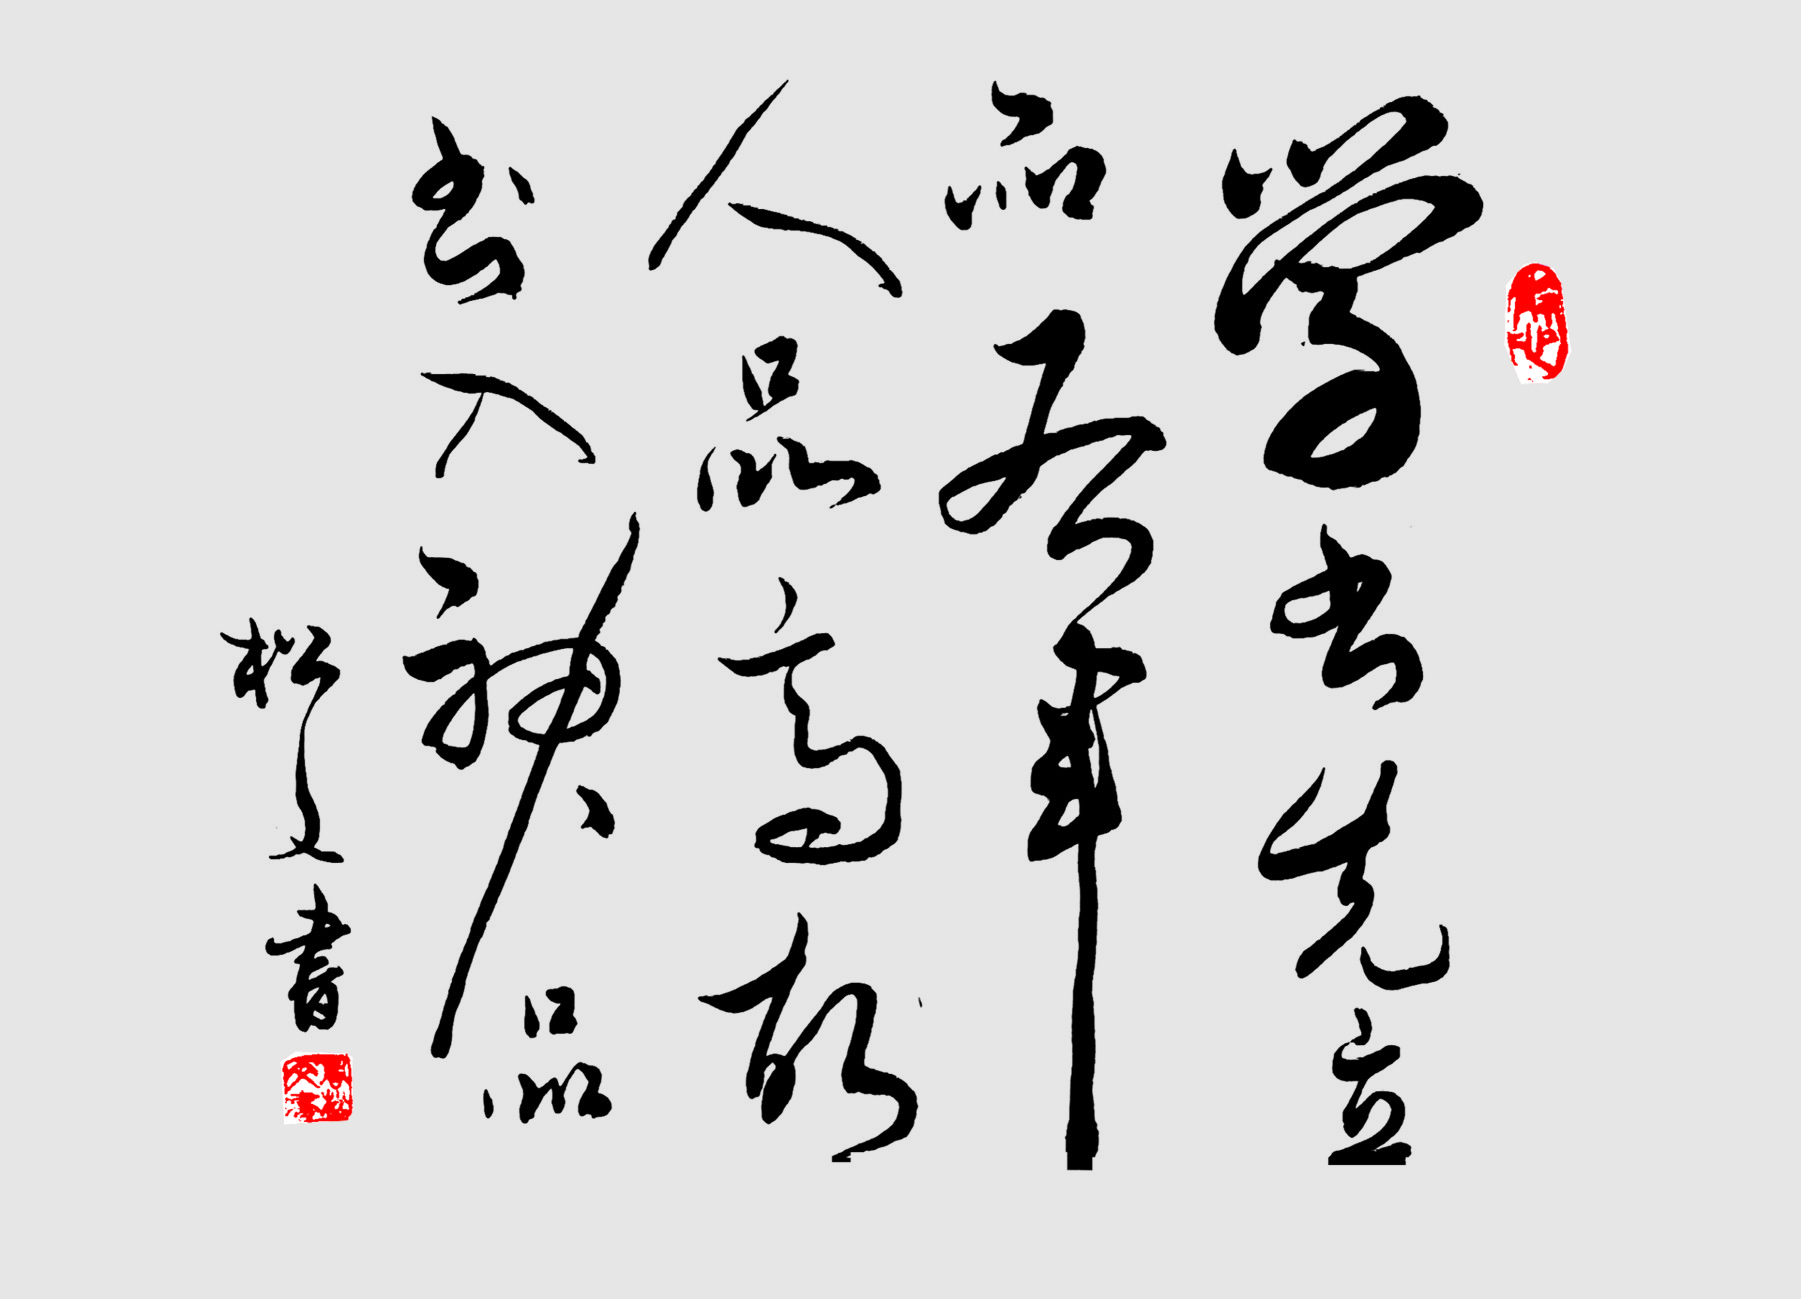 学书先立
品右軍
人品高故
书入神品
松文書